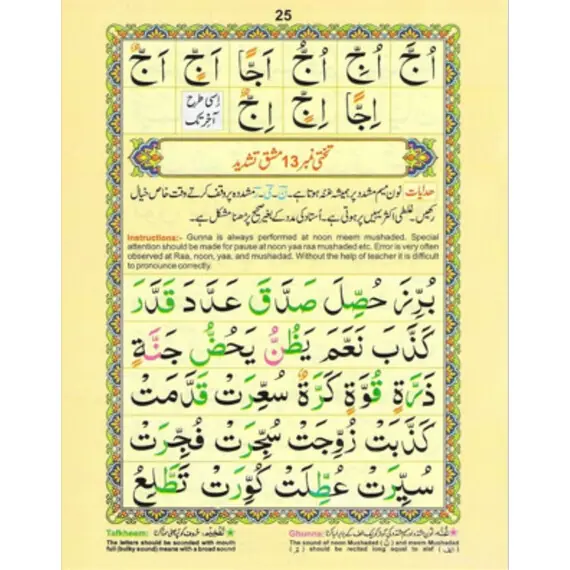 25
اُجَّ اُجِّ اُجُّ اَجًّا اَجٍّ اَجٌّ
اِجًّا اِجٍّ اِجٌّ اِسی طرح آخر تک
تختی نمبر 13 مشق تشدید
ھدایات نون میم مشدد پر ہمیشہ غنہ ہوتا ہے۔ ن، ی، ر، مشددہ پر وقف کرتے وقت خاص خیال
رکھیں۔ غلطی اکثر یہیں پر ہوتی ہے۔ اُستاد کی مدد کے بغیر صحیح پڑھنا مشکل ہے۔
Instructions:- Gunna is always performed at noon meem mushaded. Special
attention should be made for pause at noon yaa raa mushaded etc. Error is very often
observed at Raa, noon, yaa, and mushadad. Without the help of teacher it is difficult
to pronounce correctly.
بُرِّزَ حُصِّلَ صَدَّقَ عَدَّدَ قَدَّرَ
كَذَّبَ نَعَّمَ يَظُنُّ يَحُضُّ جَنَّةٍ
ذَرَّةٍ قُوَّةٍ كَرَّةٌ سُعِّرَتْ قَدَّمَتْ
كَذَّبَتْ زُوِّجَتْ سُجِّرَتْ فُجِّرَتْ
سُيِّرَتْ عُطِّلَتْ كُوِّرَتْ تَطَّلِعُ
Tafkheem:
The letters should be sounded with mouth
full (bulky sound) means with a broad sound
Ghunna:
The sound of noon Mushadad (نّ) and meem Mushadad
(مّ) should be recited long equal to alef (الف)